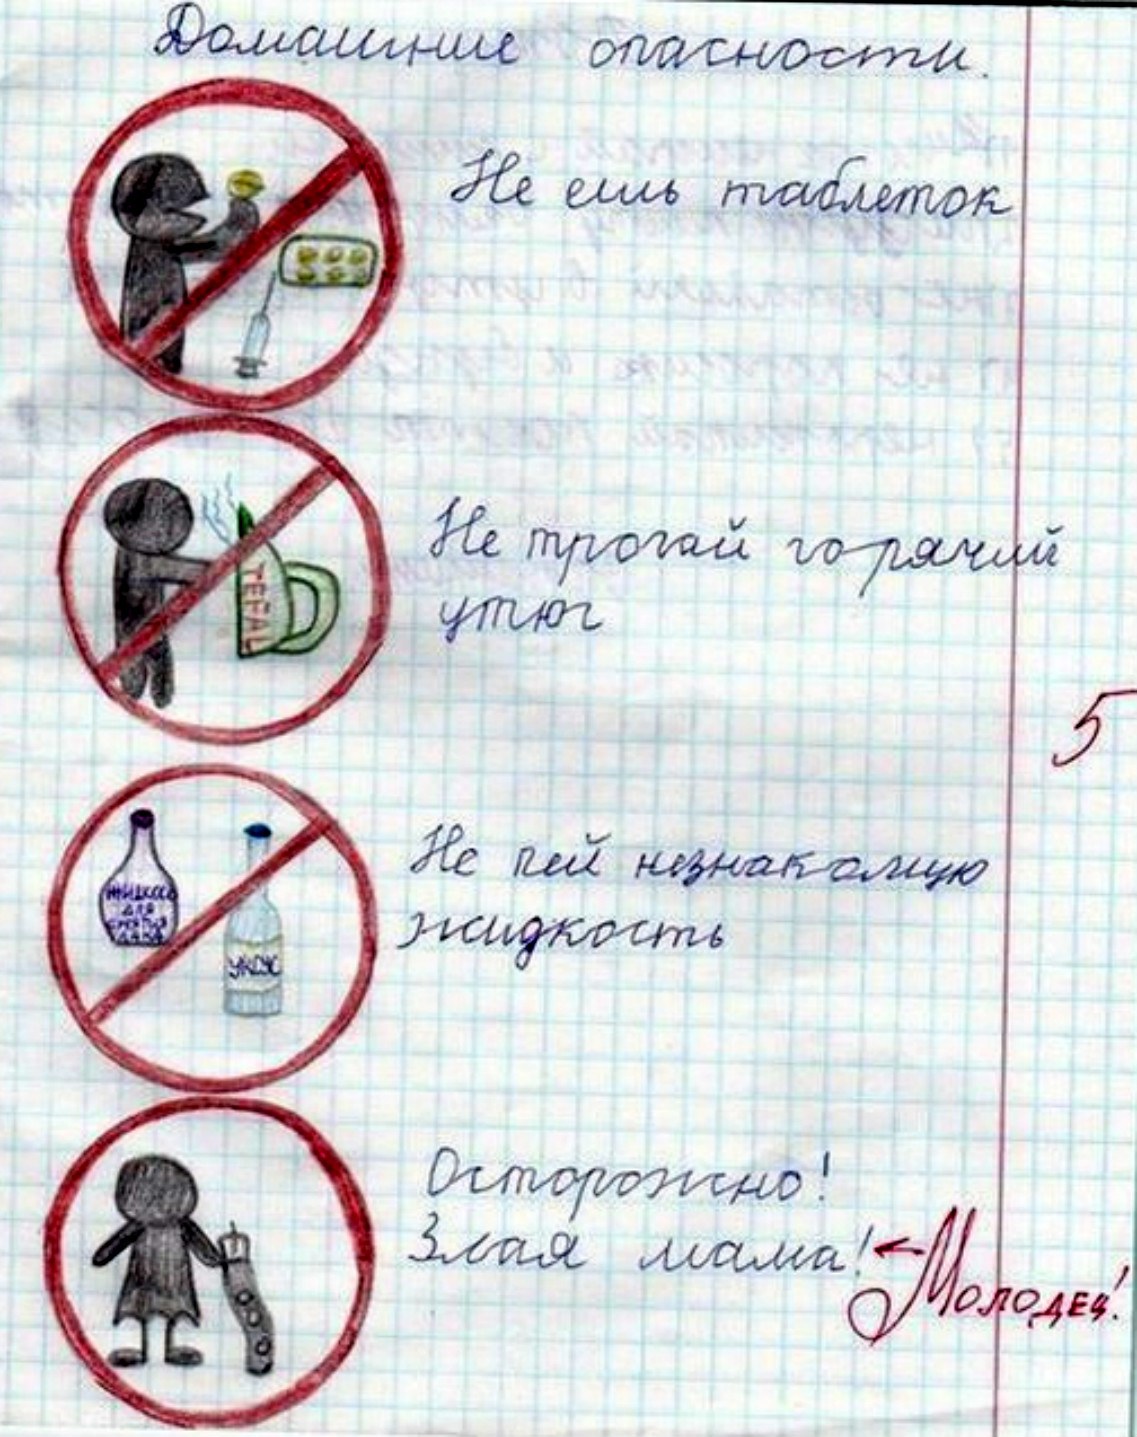 Домашние опасности.
Не ешь таблеток
Не трогай горячий
утюг
TEFAL
5
Не пей незнакомую
жидкость
ЖИДКОСТЬ
ДЛЯ
СНЯТЬЯ
ЛАКА
УКСУС
Осторожно!
Злая мама!
Молодец!